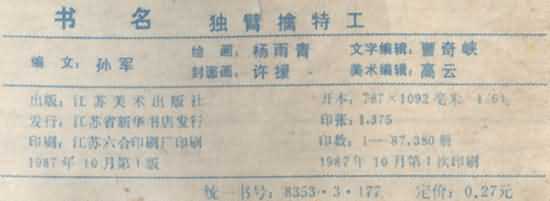 书名 独臂擒特工
编文：孙军 绘画：杨雨青 文字编辑：贾奇峡
封面画：许援 美术编辑：高云
出版：江苏美术出版社 开本：787×1092毫米 1/64
发行：江苏省新华书店发行 印张：1.375
印刷：江苏六合印刷厂印刷 印数：1—87,380册
1987年10月第1版 1987年10月第1次印刷
统一书号：8353·3·177 定价：0.27元